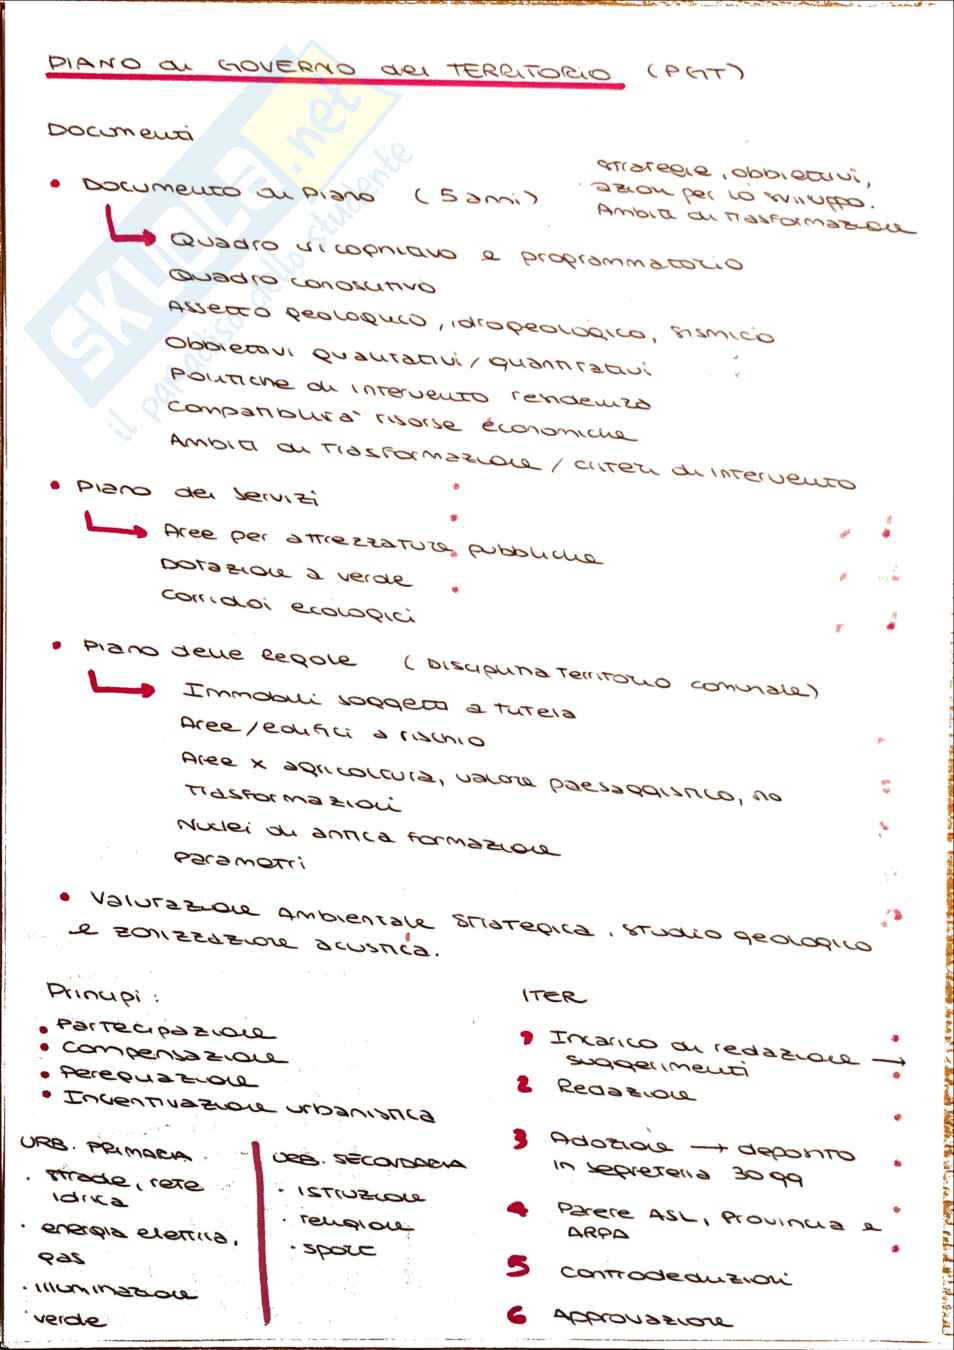 PIANO di GOVERNO del TERRITORIO (PGT)
Documenti
• Documento di Piano (5 anni)
strategie, obbiettivi,
azioni per lo sviluppo.
Ambiti di trasformazione
Quadro ricognitivo e programmatorio
Quadro conoscitivo
Assetto geologico, idrogeologico, sismico
Obbiettivi qualitativi / quantitativi
Politiche di intervento residenza
Compatibilità risorse economiche
Ambiti di Trasformazione / criteri di intervento
• Piano dei servizi
Aree per attrezzature pubbliche
Dotazione a verde
Corridoi ecologici
• Piano delle Regole (Disciplina Territorio comunale)
Immobili soggetti a tutela
Aree/edifici a rischio
Aree x agricoltura, valore paesaggistico, no
trasformazioni
Nuclei di antica formazione
Parametri
• Valutazione Ambientale Strategica, studio geologico
e zonizzazione acustica.
Principi:
• Partecipazione
• Compensazione
• Perequazione
• Incentivazione urbanistica
URB. PRIMARIA
· strade, rete
idrica
· energia elettrica,
gas
· illuminazione
· verde
URB. SECONDARIA
· istruzione
· religione
· sport
ITER
1 Incarico di redazione →
suggerimenti
2 Redazione
3 Adozione → deposito
in segreteria 30 gg
4 Parere ASL, Provincia e
ARPA
5 Controdeduzioni
6 Approvazione
SKUOLA.net
il paradiso dello studente